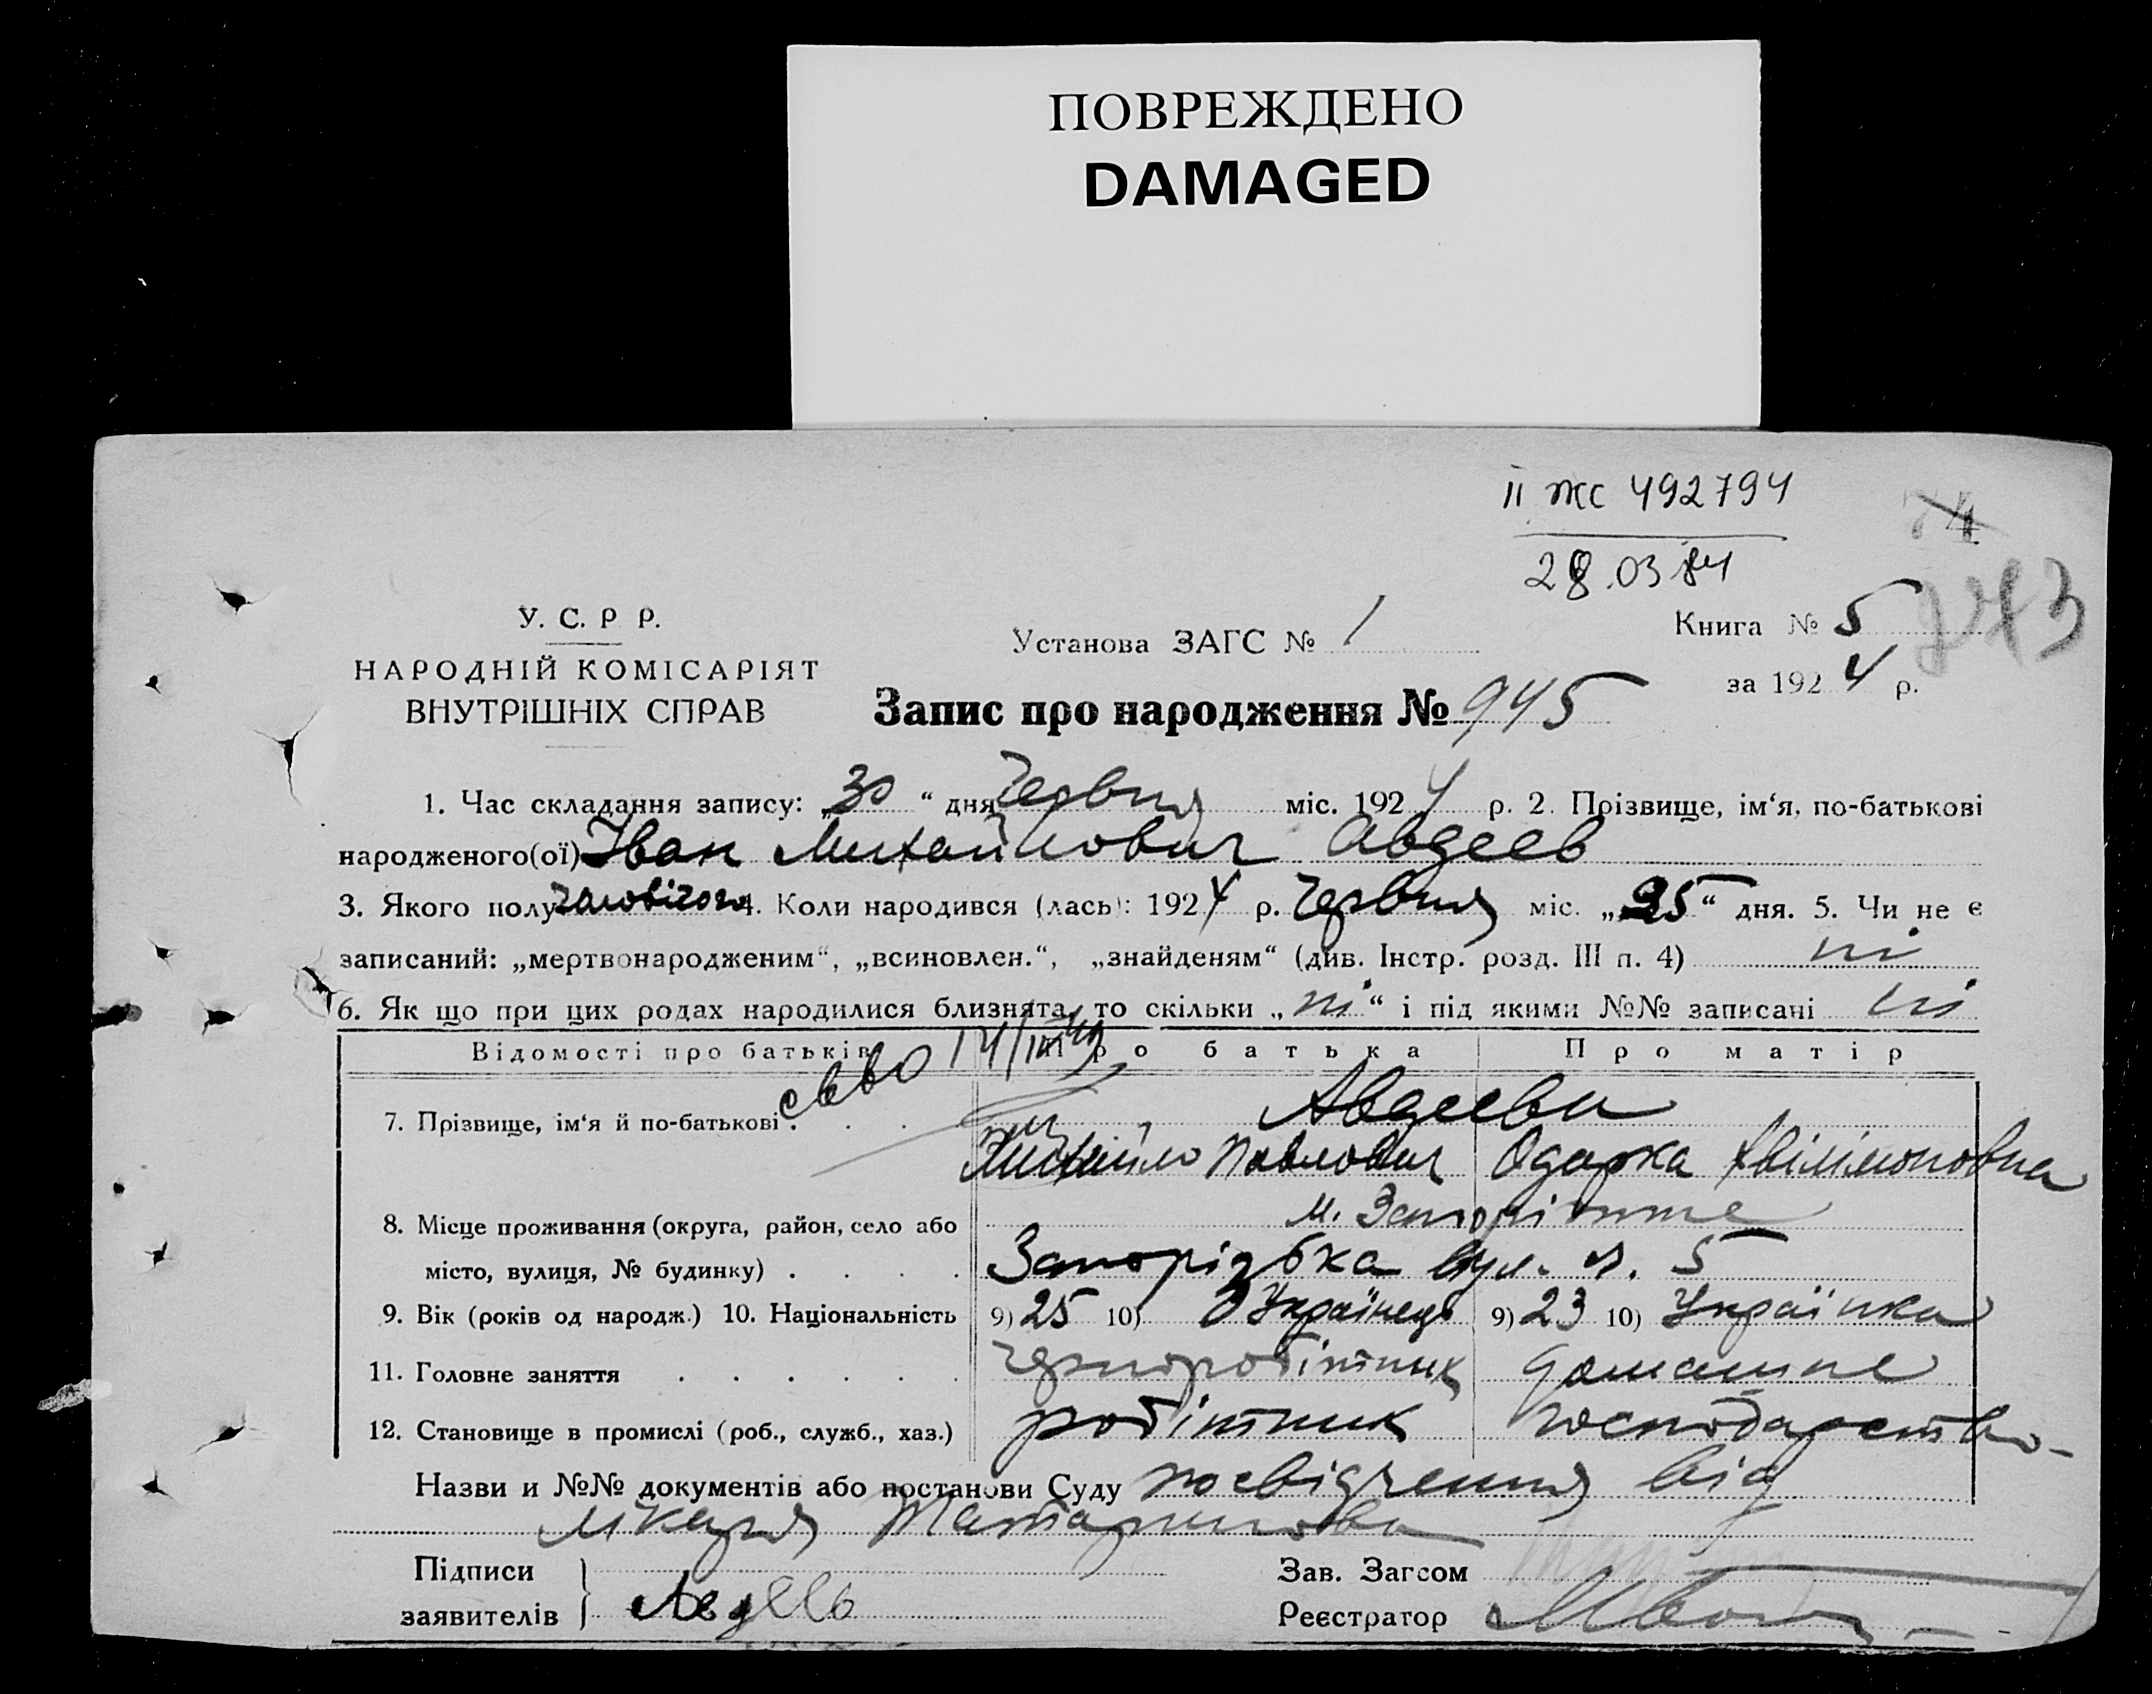 ПОВРЕЖДЕНО
DAMAGED
II ЖС 492794
28.03.84
74
243
У. С. Р Р.
НАРОДНІЙ КОМІСАРІЯТ
ВНУТРІШНІХ СПРАВ
Установа ЗАГС № 1
Книга № 5
за 1924 р.
Запис про народження № 945
1. Час складання запису: „30“ дня Червня міс. 1924 р. 2. Прізвище, ім‘я, по-батькові
народженого(ої) Іван Михайлович Авдеев
3. Якого полу чоловічого 4. Коли народився (лась): 1924 р. Червня міс. „25“ дня. 5. Чи не є
записаний: „мертвонародженим“, „всиновлен.“, „знайденям“ (див. Інстр. розд. III п. 4) ні
6. Як що при цих родах народилися близнята, то скільки „ні“ і під якими №№ записані ні
Відомості про батьків Про батька Про матір
7. Прізвище, ім‘я й по-батькові . . . Авдееви
Михайло Павлович Одарка Хвілімоновна
8. Місце проживання (округа, район, село або м. Запоріжже
місто, вулиця, № будинку) . . . . Запорізька вул. 5
9. Вік (років од народж.) 10. Національність 9) 25 10) Українець 9) 23 10) Українка
11. Головне заняття . . . . . . чернороб́ітник домашне
12. Становище в промислі (роб., служб., хаз.) робітник господарство
Назви и №№ документів або постанови Суду посвідчення від
лікаря Татаринова
Підписи
заявителів Авдеев
Зав. Загсом
Реєстратор